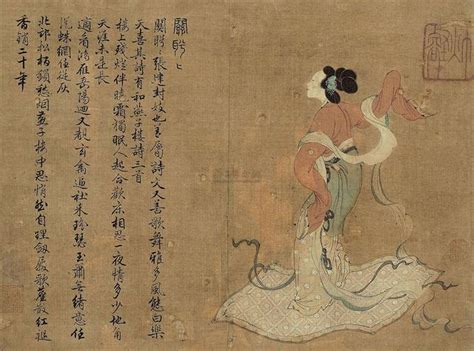 關盼〻
關盼〻張建封妓也善屬詩文又喜歌舞雅多風態白樂
天喜其詩有和燕子樓詩三首
樓上殘燈伴曉霜獨眠人起合歡床相思一夜情多少地角
天涯未是長
適看鴻雁岳陽迴又覩玄禽逼社來瑤瑟玉簫無緒意任
從蛛網任從灰
北邙松柏鎖愁烟燕子樓中思悄然自理劍履歌塵散紅褪
香銷二十年